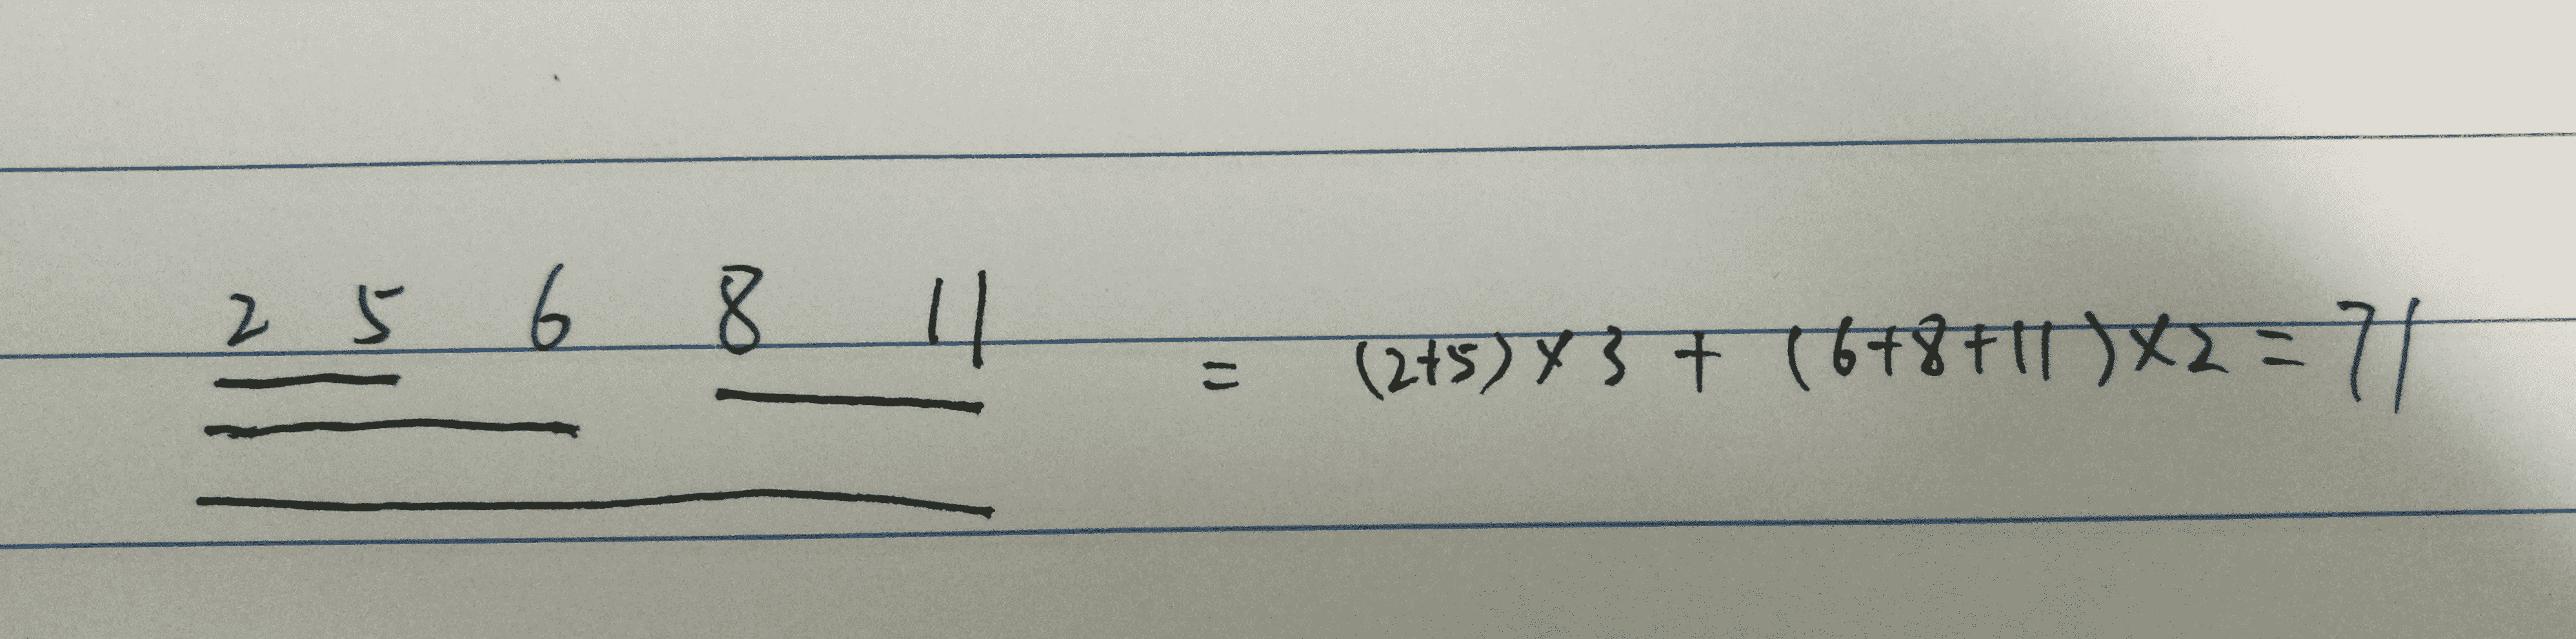 2 5 6 8 11 = (2+5)×3 + (6+8+11)×2=71